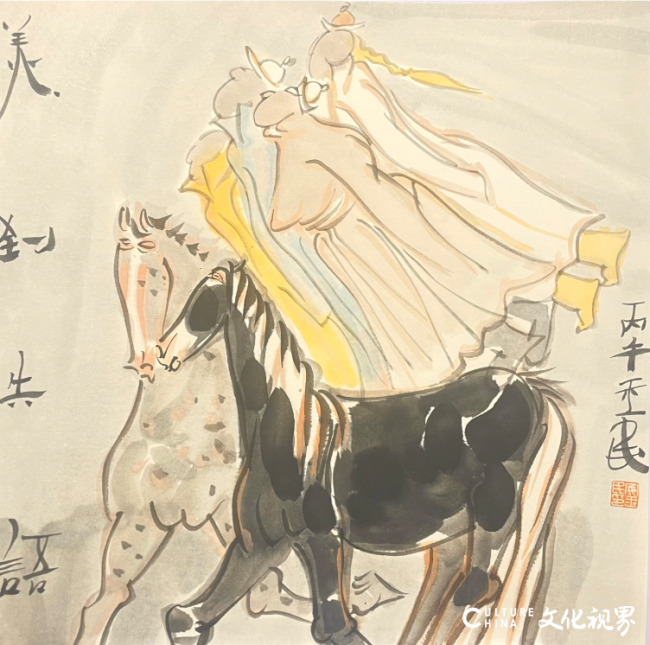 美到失語
丙午民
CULTURE
CHINA 文化视界